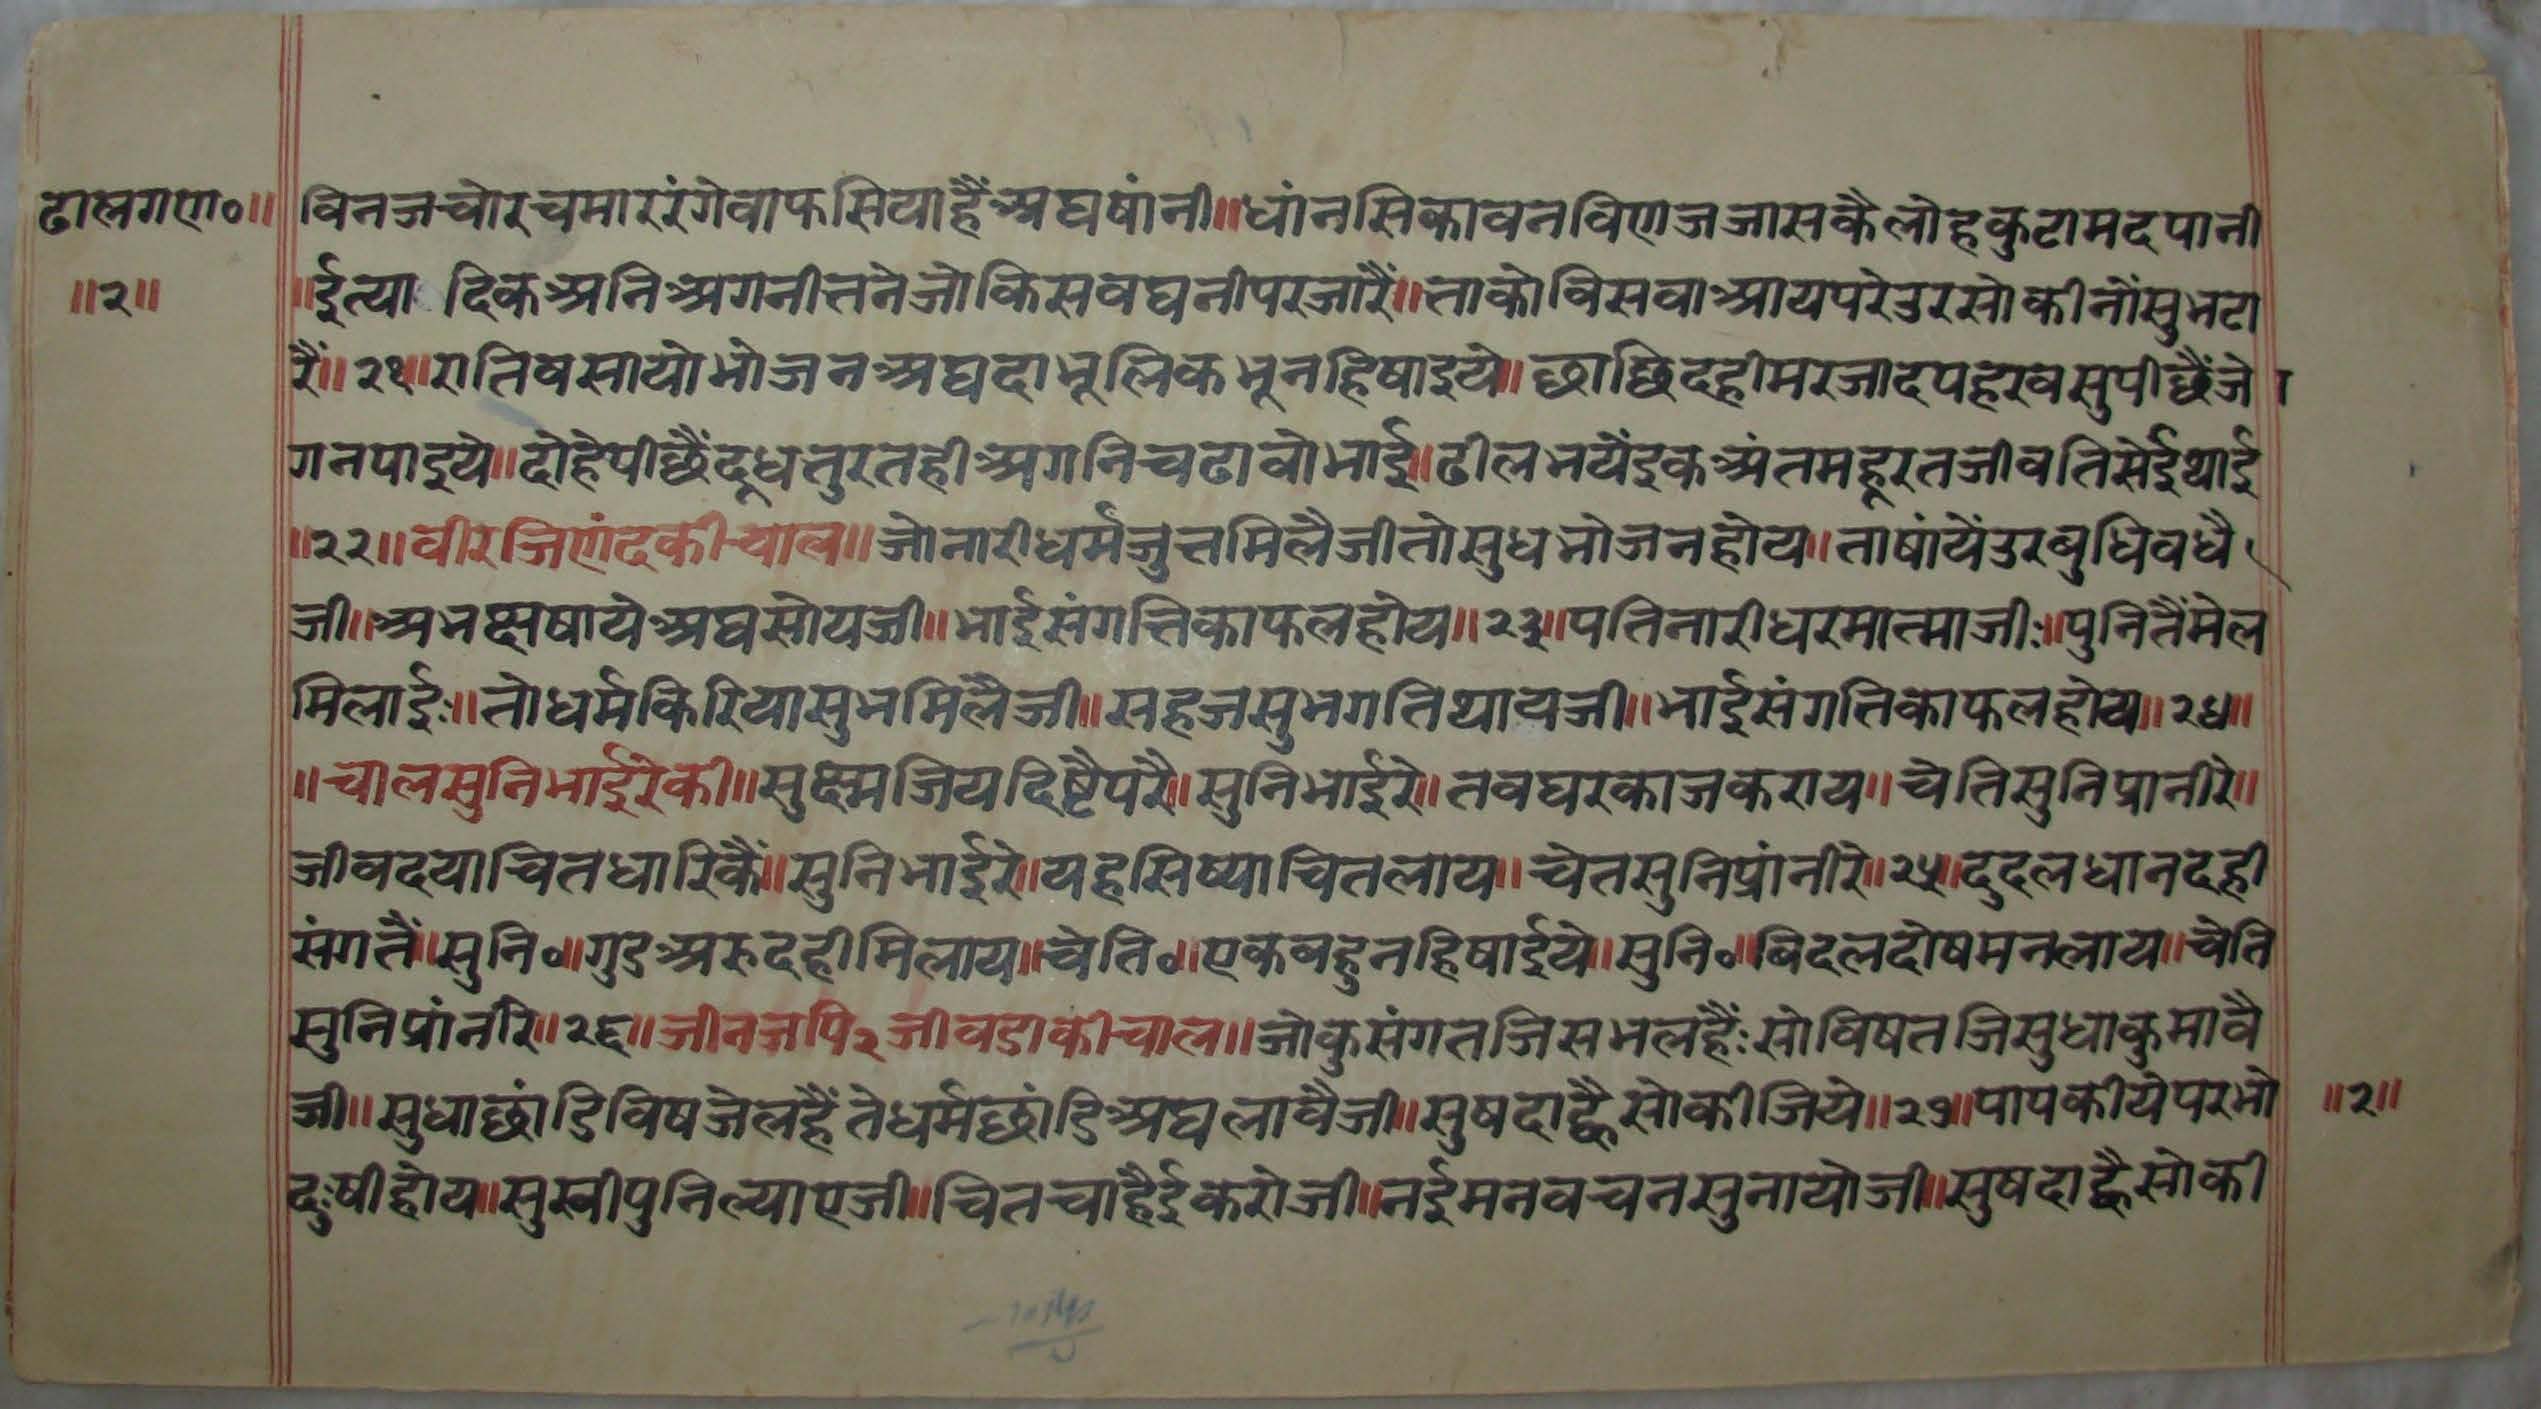 ढालगण०॥
॥२॥
विनजचोरचमाररंगेवाफसियाहैंअघषांनी॥धांनसिकावनविणजजासकैलोहकुटामदपानी
॥ईत्यादिकअनिअगनीतनेजोकिसवघनीपरजारैं॥ताकोविसवाआयपरेउरसोकीनौंसुभटा
रैं॥२१॥रातिवसायोभोजनअघदाभूलिकभूनहिषाइये॥छाछिदहीमरजादपहरवसुपीछैंजे
गनपाइये॥दोहेपीछैंदूधतुरतहीअगनिचढावोभाई॥ढीलभयेंइकअंतमहूरतजीवतिसेईथाई
॥२२॥वीरजिणंदकीचाल॥जोनारीधर्मजुत्तमिलैजीतोसुधभोजनहोय॥ताषांयेंउरबुधिवधै
जी॥अभक्षषायेअघसोयजी॥भाईसंगत्तिकाफलहोय॥२३॥पतिनारीधरमात्माजीः॥पुनितैंमेल
मिलाईः॥तोधर्मकिरियासुभमिलैजी॥सहजसुभगतिथायजी॥भाईसंगतिकाफलहोय॥२४॥
॥चालसुनिभाईरेकी॥सुक्ष्मजियदिष्टैपरै॥सुनिभाईरे॥तवघरकाजकराय॥चेतिसुनिप्रानीरे॥
जीवदयाचितधारिकैं॥सुनिभाईरे॥यहसिष्याचितलाय॥चेतसुनिप्रांनीरे॥२५॥दुदलधानदही
संगतैं॥सुनि०॥गुडअरुदहीमिलाय॥चेति०॥एकवहुनहिषाईये॥सुनि०॥बिदलदोषमनलाय॥चेति
सुनिप्रांनीरे॥२६॥जीनजपि२जीवडाकीचाल॥जोकुसंगतजिसभलहैंः सोविषतजिसुधाकुमावै
जी॥सुधाछांडिविषजेलहैंतेधर्मछांडिअघलावैजी॥सुषदाह्वैसोकीजिये॥२७॥पापकीयेपरभो
॥२॥
दुःषीहोय॥सुस्त्रीपुनिल्याएजी॥चितचाहैईकरोजी॥नईमनवचनसुनायोजी॥सुषदाह्वैसोकी